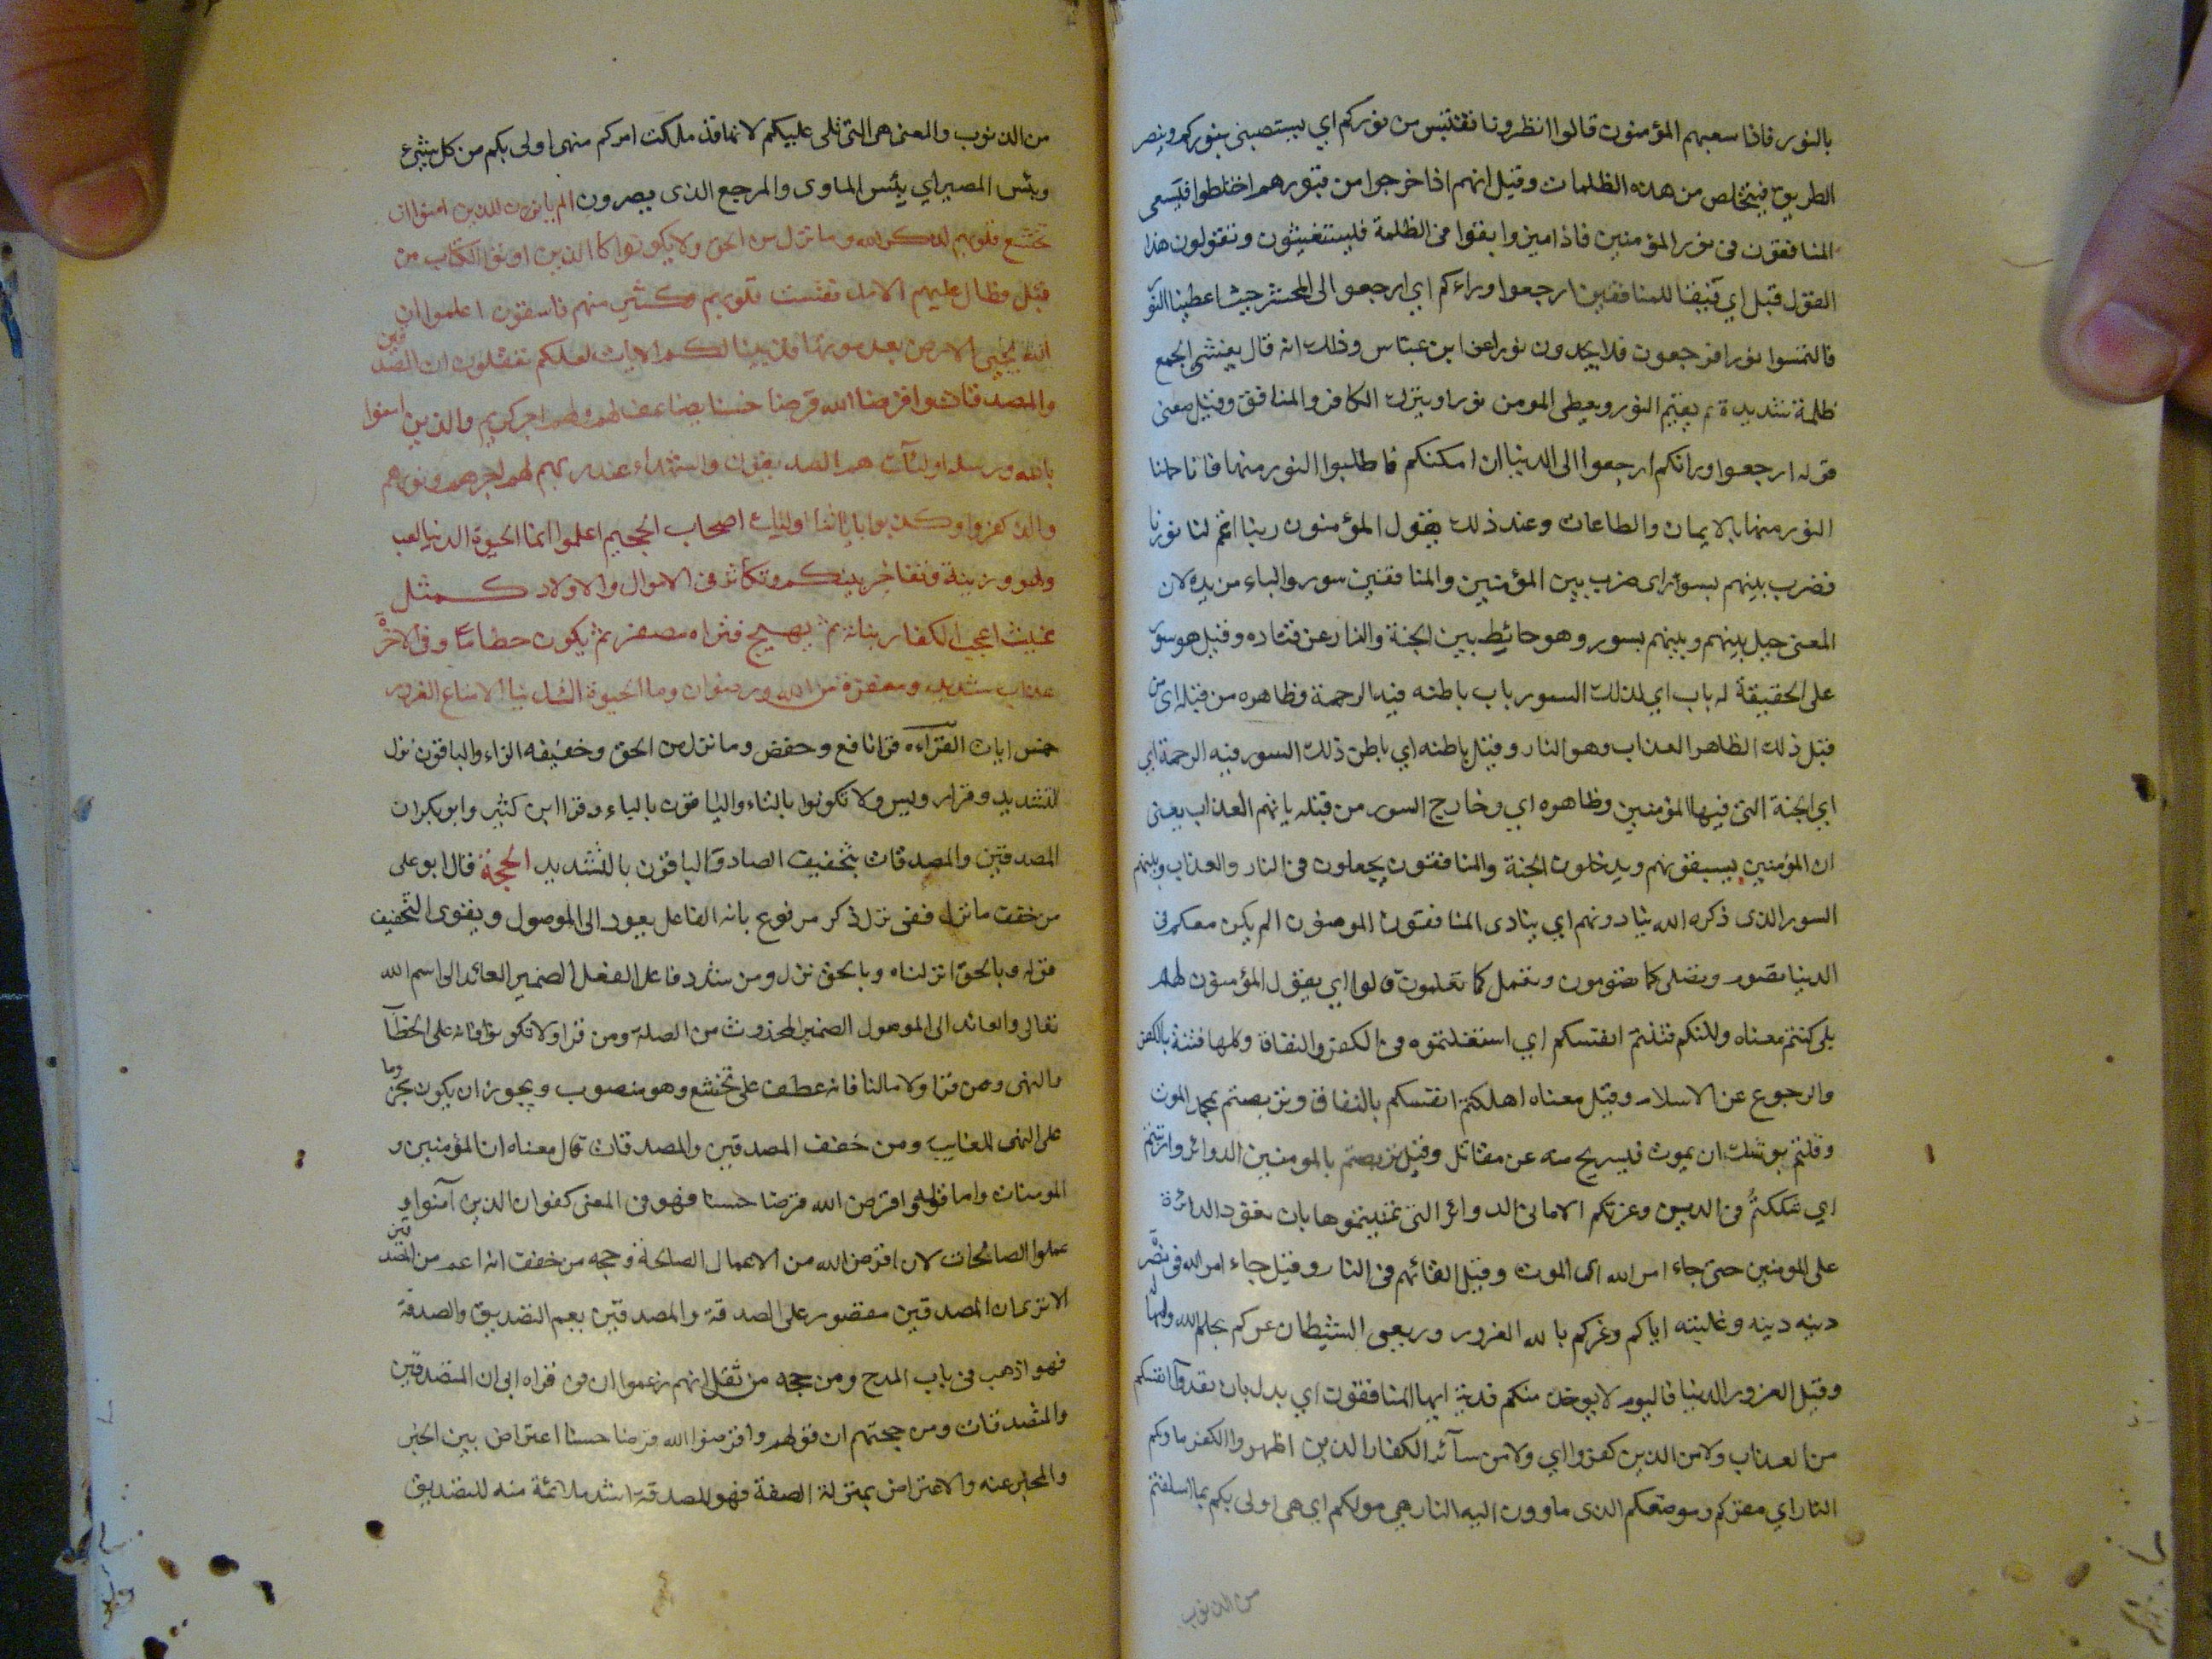 بالنور فاذا سعبهم المؤمنون قالوا انظرونا نقتبس من نوركم اي يستصبئ بنوركم وينصر
الطريق فيتخلص من هذه الظلمات وقيل انهم اذا خرجوا من قبورهم اختلطوا فيسعى
المنافقون في نور المؤمنين فاذا ميزوا بقوا في الظلمة فليستغيثون ونقولون هذا
القول قيل اي قيقا للمنافقين ارجعوا وراءكم اي ارجعوا الى المحشر حيث اعطينا النور
فالتمسوا نورا فرجعون فلا يجدون نورا عن ابن عباس وذلك انه قال يغشى الجمع
ظلمة شديدة ثم يقيم النور ويعطى المومن نورا ويترك الكافر والمنافق وقيل معنى
قوله ارجعوا ورائكم ارجعوا الى الدنيا ان امكنكم فاطلبوا النور منها فانا حملنا
النور منها بالايمان والطاعات وعند ذلك يقول المؤمنون ربنا اتمم لنا نورنا
فضرب بينهم بسور اى ضرب بين المؤمنين والمنافقين سور والباء مزيده لان
المعنى حيل بينهم وبينهم بسور وهو حائط بين الجنة والنار عن قتاده وقيل هو سور
على الحقيقة له باب اي لذلك السور باب باطنه فيه الرحمة وظاهره من قبله اى من
قبل ذلك الظاهر العذاب وهو النار وقيل باطنه اي باطن ذلك السور فيه الرحمة اي
اي الجنة التى فيها المؤمنين وظاهره اي وخارج السور من قبله يانهم العذاب يعنى
ان المؤمنين يسبقونهم ويدخلون الجنة والمنافقون يجعلون في النار والعذاب وبينهم
السور الذى ذكره الله ينادونهم اي ينادى المنافقون المومنون الم يكن معكم فى
الدنيا نصوم ونصلى كما تصومون ونعمل كما تعلمون قالوا اي يقول المؤمنون لهم
بلى كنتم معناه ولكنكم فتنتم انفسكم اي استعملتموه فى الكفر والنفاق وكلها فتنة بالكفر
والرجوع عن الاسلام وقيل معناه اهلكتم انفسكم بالنفاق وتربصتم بمحمد الموت
وقلتم يوشك ان يموت فيسريح منه عن مقاتل وقيل تربصتم بالمومنين الدوائر وارتبتم
اي شككتم فى الدين وغرتكم الامانى الدوائر التى تمنيتموها بان تعود الدائرة
على المومنين حتى جاء امر الله اى الموت وقيل القائهم فى النار وقيل جاء امر الله فى نصر
دينه دينه وغلبته اياكم وغركم بالله الغرور وربعى الشيطان غركم بحلم الله وامهاله
وقيل الغرور الدنيا فاليوم لا يوخذ منكم فدية ايها المنافقون اي بدل بان تفدوا انفسكم
من العذاب ولا من الذين كفروا اي ولا من سآئر الكفار الذين اظهروا الكفر ماويكم
النار اي مقركم وموضعكم الذى ماوون اليه النار هي موليكم اي هى اولى بكم بما اسلفتم
من الذنوب
من الذنوب والمعنى هى التى تلى عليكم لانها قد ملكت امركم منهى اولى بكم من كل شيئ
وبئس المصير اي بئس الماوى والمرجع الذى يصرون الم يان للذين امنوا ان
تخشع قلوبهم لذكر الله وما نزل من الحق ولا يكونوا كالذين اوتوا الكتاب من
قبل فطال عليهم الامد فقست قلوبهم وكثير منهم فاسقون اعلموا ان
الله يحيى الارض بعد موتها قد بينا لكم الايات لعلكم تعقلون ان المصدقين
والمصدقات واقرضوا الله قرضا حسنا يضاعف لهم ولهم اجر كريم والذين امنوا
بالله ورسله اولئك هم الصديقون والشهداء عند ربهم لهم اجرهم ونورهم
والذين كفروا وكذبوا باياتنا اولئك اصحاب الجحيم اعلموا انما الحيوة الدنيا لعب
ولهو وزينة وتفاخر بينكم وتكاثر فى الاموال والاولاد كمثل
غيث اعجب الكفار نباته ثم يهيج فتراه مصفر ثم يكون حطاما وفى الاخرة
عذاب شديد ومغفرة من الله ورضوان وما الحيوة الدنيا الا متاع الغرور
خمس ايات القراءه قرا نافع وحفص وما نزل من الحق وخفيفه الزاء والباقون نزل
التشديد وقرا رويس ولا تكونوا بالتاء والباقون بالياء وقرا ابن كثير وابو بكر ان
المصدقين والمصدقات بتخفيف الصاد والباقون بالتشديد الحجة قال ابو على
من خفف ما نزل ففى نزل ذكر مرفوع بانه الفاعل يعود الى الموصول ويقوى التخفيف
قوله وبالحق انزلناه وبالحق نزل ومن شدد فاعل الفعل الضمير العائد الى اسم الله
تعالى والعائد الى الموصول الضمير المحذوف من الصلة ومن قرا ولا تكونوا فانه على الخطآ
مالنهى ومن قرا ولا مالنا فانه عطف على تخشع وهو منصوب ويجوز ان يكون مجزوما
على النهى للغايب ومن خفف المصدقين والمصدقات قال معناه ان المؤمنين و
المومنات واما قوله واقرض الله قرضا حسنا فهو فى المعنى كقوان الذين آمنوا و
عملوا الصالحات لان اقرض الله من الاعمال الصالحة وحجه من خفف انه اعم من المصدقين
الا ترى ان المصدقين مقصور على الصدقة والمصدقين يعم التصديق والصدقة
فهو اذهب فى باب المدح ومن حجه من ثقل انهم زعموا ان فى قراه ابى ان المتصدقين
والمتصدقات ومن حجتهم ان قولهم واقرضوا الله قرضا حسنا اعتراض بين الخبر
والمخبر عنه والاعتراض بمنزلة الصفة فهو للصدقة اشد ملائمة منه للتصديق